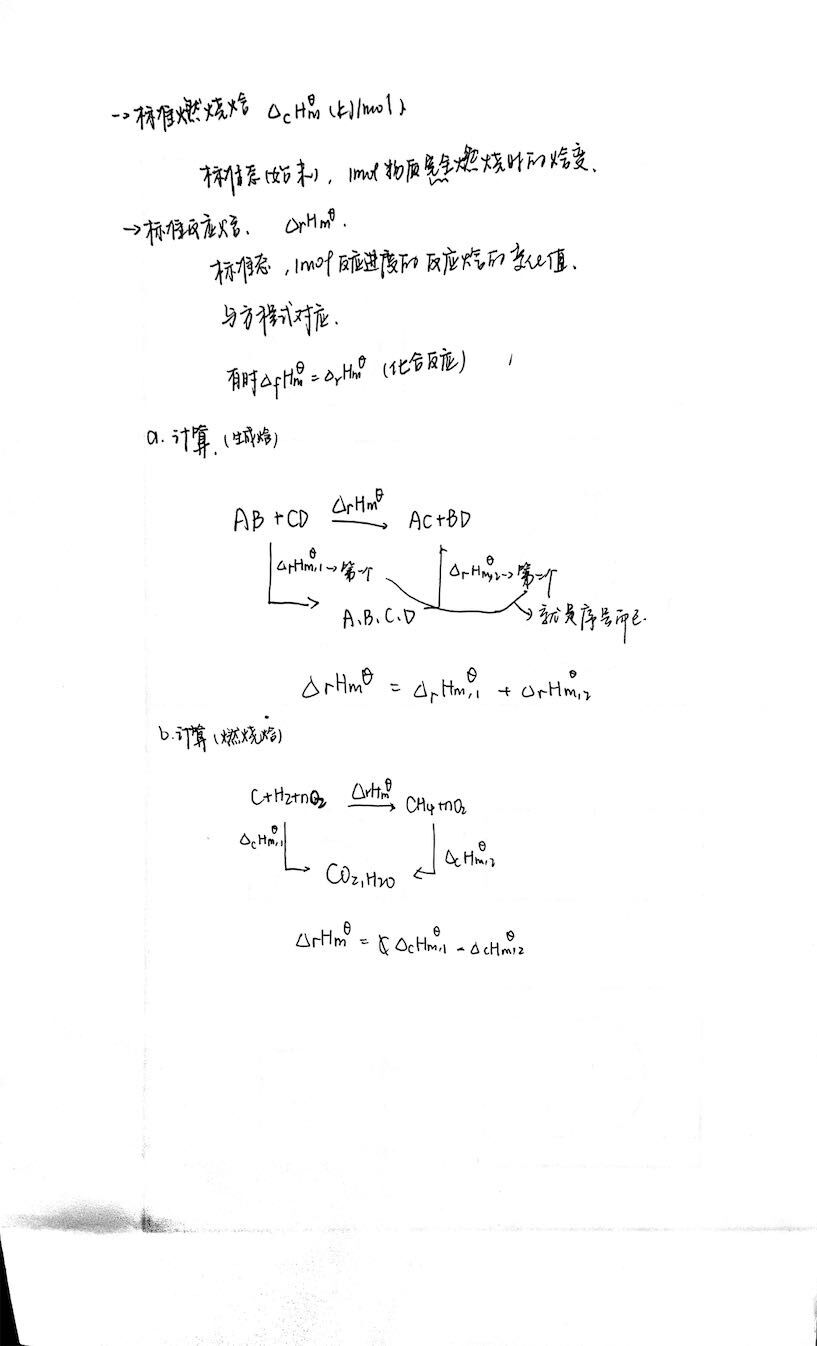 →标准燃烧焓 ΔcHmθ (kJ/mol)
标准态(始末), 1mol物质完全燃烧时的焓变.
→标准反应焓. ΔrHmθ.
标准态, 1mol反应进度的反应焓的变化值.
与方程式对应.
有时ΔfHmθ=ΔrHmθ (化合反应)
a. 计算.(生成焓)
AB+CD ΔrHmθ→ AC+BD
ΔrHm,1θ→第一个 ΔrHm,2θ→第二个
A.B.C.D →就是序号而已.
ΔrHmθ = ΔrHm,1θ + ΔrHm,2θ
b.计算(燃烧焓)
C+H2+nO2 ΔrHmθ→ CH4+nO2
ΔcHm,1θ ΔcHm,2θ
CO2,H2O
ΔrHmθ = ΔcHm,1θ - ΔcHm,2θ